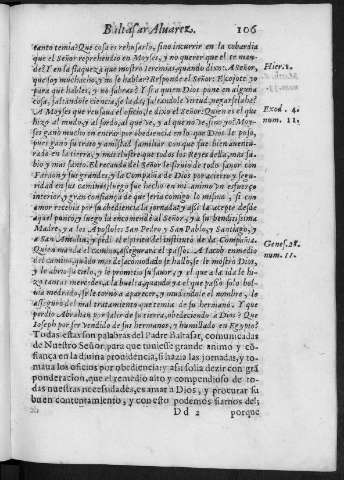 Baltasar Aluarez. 106
tanto temia? Que cosa es rehusarlo, sino incurrir en la cobardia
que el Señor reprehendio en Moyses, y no querer que el te man-
de? Y en la flaqueza que mostrò Ieremias, quando dixo: A Señor,
que soy muchacho, y no se hablar? Responde el Señor: Escojote yo
para que hables, y no sabras? Y si a quien Dios pone en alguna
cosa, faltandole ciencia, se la dà; faltandole virtud, negarsela ha?
A Moyses que reusaua el oficio, le dixo el Señor: Quien es el que
hizo al mudo, y al sordo, al que vè, y al que no vè, sino yo? Moy-
ses ganò mucho en entrar por obediencia en lo que Dios le puso,
pues ganò su trato y amistad familiar con que fue bien auentu-
rado en la tierra, y mas ilustre que todos los Reyes della, mas sa-
bio y mas santo. El recaudo del Señor le siruio de todo fauor con
Faraon y sus grandes, y la Compañia de Dios por acierto y segu-
ridad en sus caminos; luego fue hecho en mi animo vn esfuerço
interior, y gran confiança de que seria comigo lo mismo, si con
amor recebia por su obediencia la jornada; y assi la acepte desde
aquel punto, y luego la encomendè al Señor, y a su benditissima
Madre, y a los Apostoles San Pedro y San Pablo, y Santiago, y
a San Antolin, y pedi el espiritu del instituto de la Compañia.
Quien manda el camino, assegura el passo. A Iacob en medio
del camino, quando mas desacomodado se hallò, se le mostrò Dios,
y le abrio su cielo, y le prometio su fauor, y el que a la ida le hi-
zo tantas mercedes, a la buelta, quando ya el passo solo boluia
medrado, se le tornò a aparecer, y mudandole el nombre, le
assegurò del mal tratamiento que temia de su hermano. Y que
perdio Abrahan por salir de su tierra, obedeciendo a Dios? Que
Ioseph por ser vendido de sus hermanos, y humillado en Egypto?
Todas estas son palabras del Padre Baltasar, comunicadas
de Nuestro Señor, para que tuuiesse grande animo y cõ-
fiança en la diuina prouidencia, si hazia las jornadas, y to-
maua los oficios por obediencia: y assi solia dezir con grã
ponderacion, que el remedio alto y compendioso de to-
das nuestras necessidades, es amar a Dios, y procurar su
buen contentamiento, y con esto podemos fiarnos del;
D d 2 porque
Hier. 1.
Exod. 4.
num. 11.
Genes. 28.
num. 11.